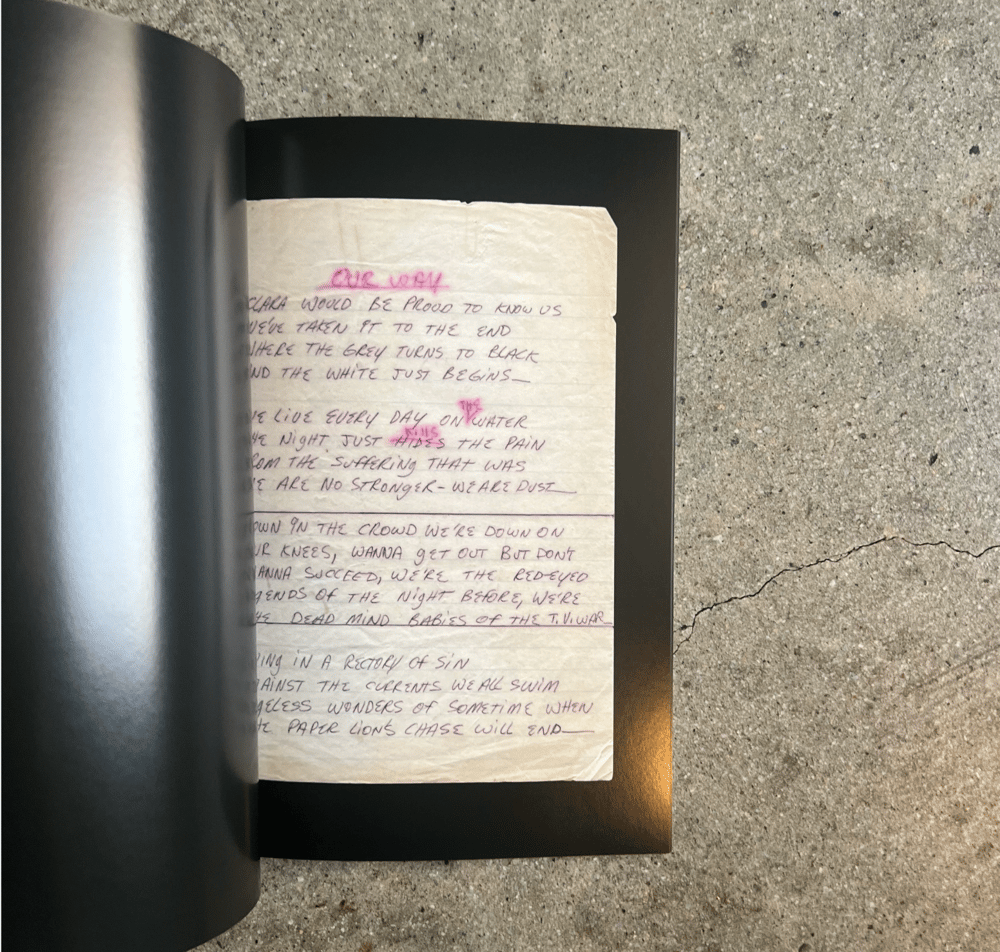 OUR WAY
CLARA WOULD BE PROUD TO KNOW US
WE'VE TAKEN IT TO THE END
WHERE THE GREY TURNS TO BLACK
ND THE WHITE JUST BEGINS—
THE
WE LIVE EVERY DAY ON WATER
KILLS
HE NIGHT JUST HIDES THE PAIN
ROM THE SUFFERING THAT WAS
WE ARE NO STRONGER - WE ARE DUST—
OWN IN THE CROWD WE'RE DOWN ON
UR KNEES, WANNA GET OUT BUT DON'T
WANNA SUCCEED, WE'RE THE RED-EYED
ENDS OF THE NIGHT BEFORE, WE'RE
HE DEAD MIND BABIES OF THE T.V. WAR
ING IN A RECTORY OF SIN
AINST THE CURRENTS WE ALL SWIM
ELESS WONDERS OF SOMETIME WHEN
HE PAPER LIONS CHASE WILL END—